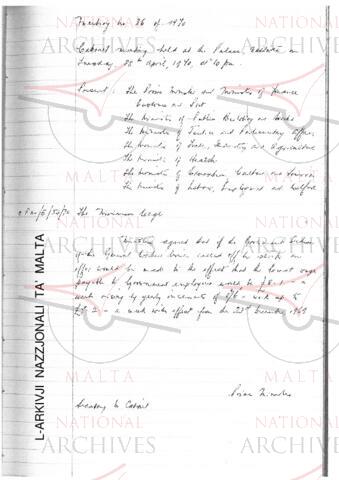 Meeting no. 36 of 1970
Cabinet meeting held at the Palace, Valletta on
Tuesday, 28th April, 1970, at 6 p.m.
Present: The Prime Minister and Minister of Finance
Customs and Port
The Minister of Public Building and Works
The Minister of Justice and Parliamentary Affairs
The Minister of Trade, Industry and Agriculture
The Minister of Health
The Minister of Education, Culture and Tourism
The Minister of Labour, Employment and Welfare
The Minimum Wage
agreed that if the Government
of the General Workers Union called off its strike an
offer would be made to the effect that the lowest wage
payable to Government employees would be
week rising by yearly increments of
a week with effect from the 23rd December 1969
Prime Minister
Secretary to Cabinet
L-ARKIVJI NAZZJONALI TA' MALTA
NATIONAL
ARCHIVES
MALTA